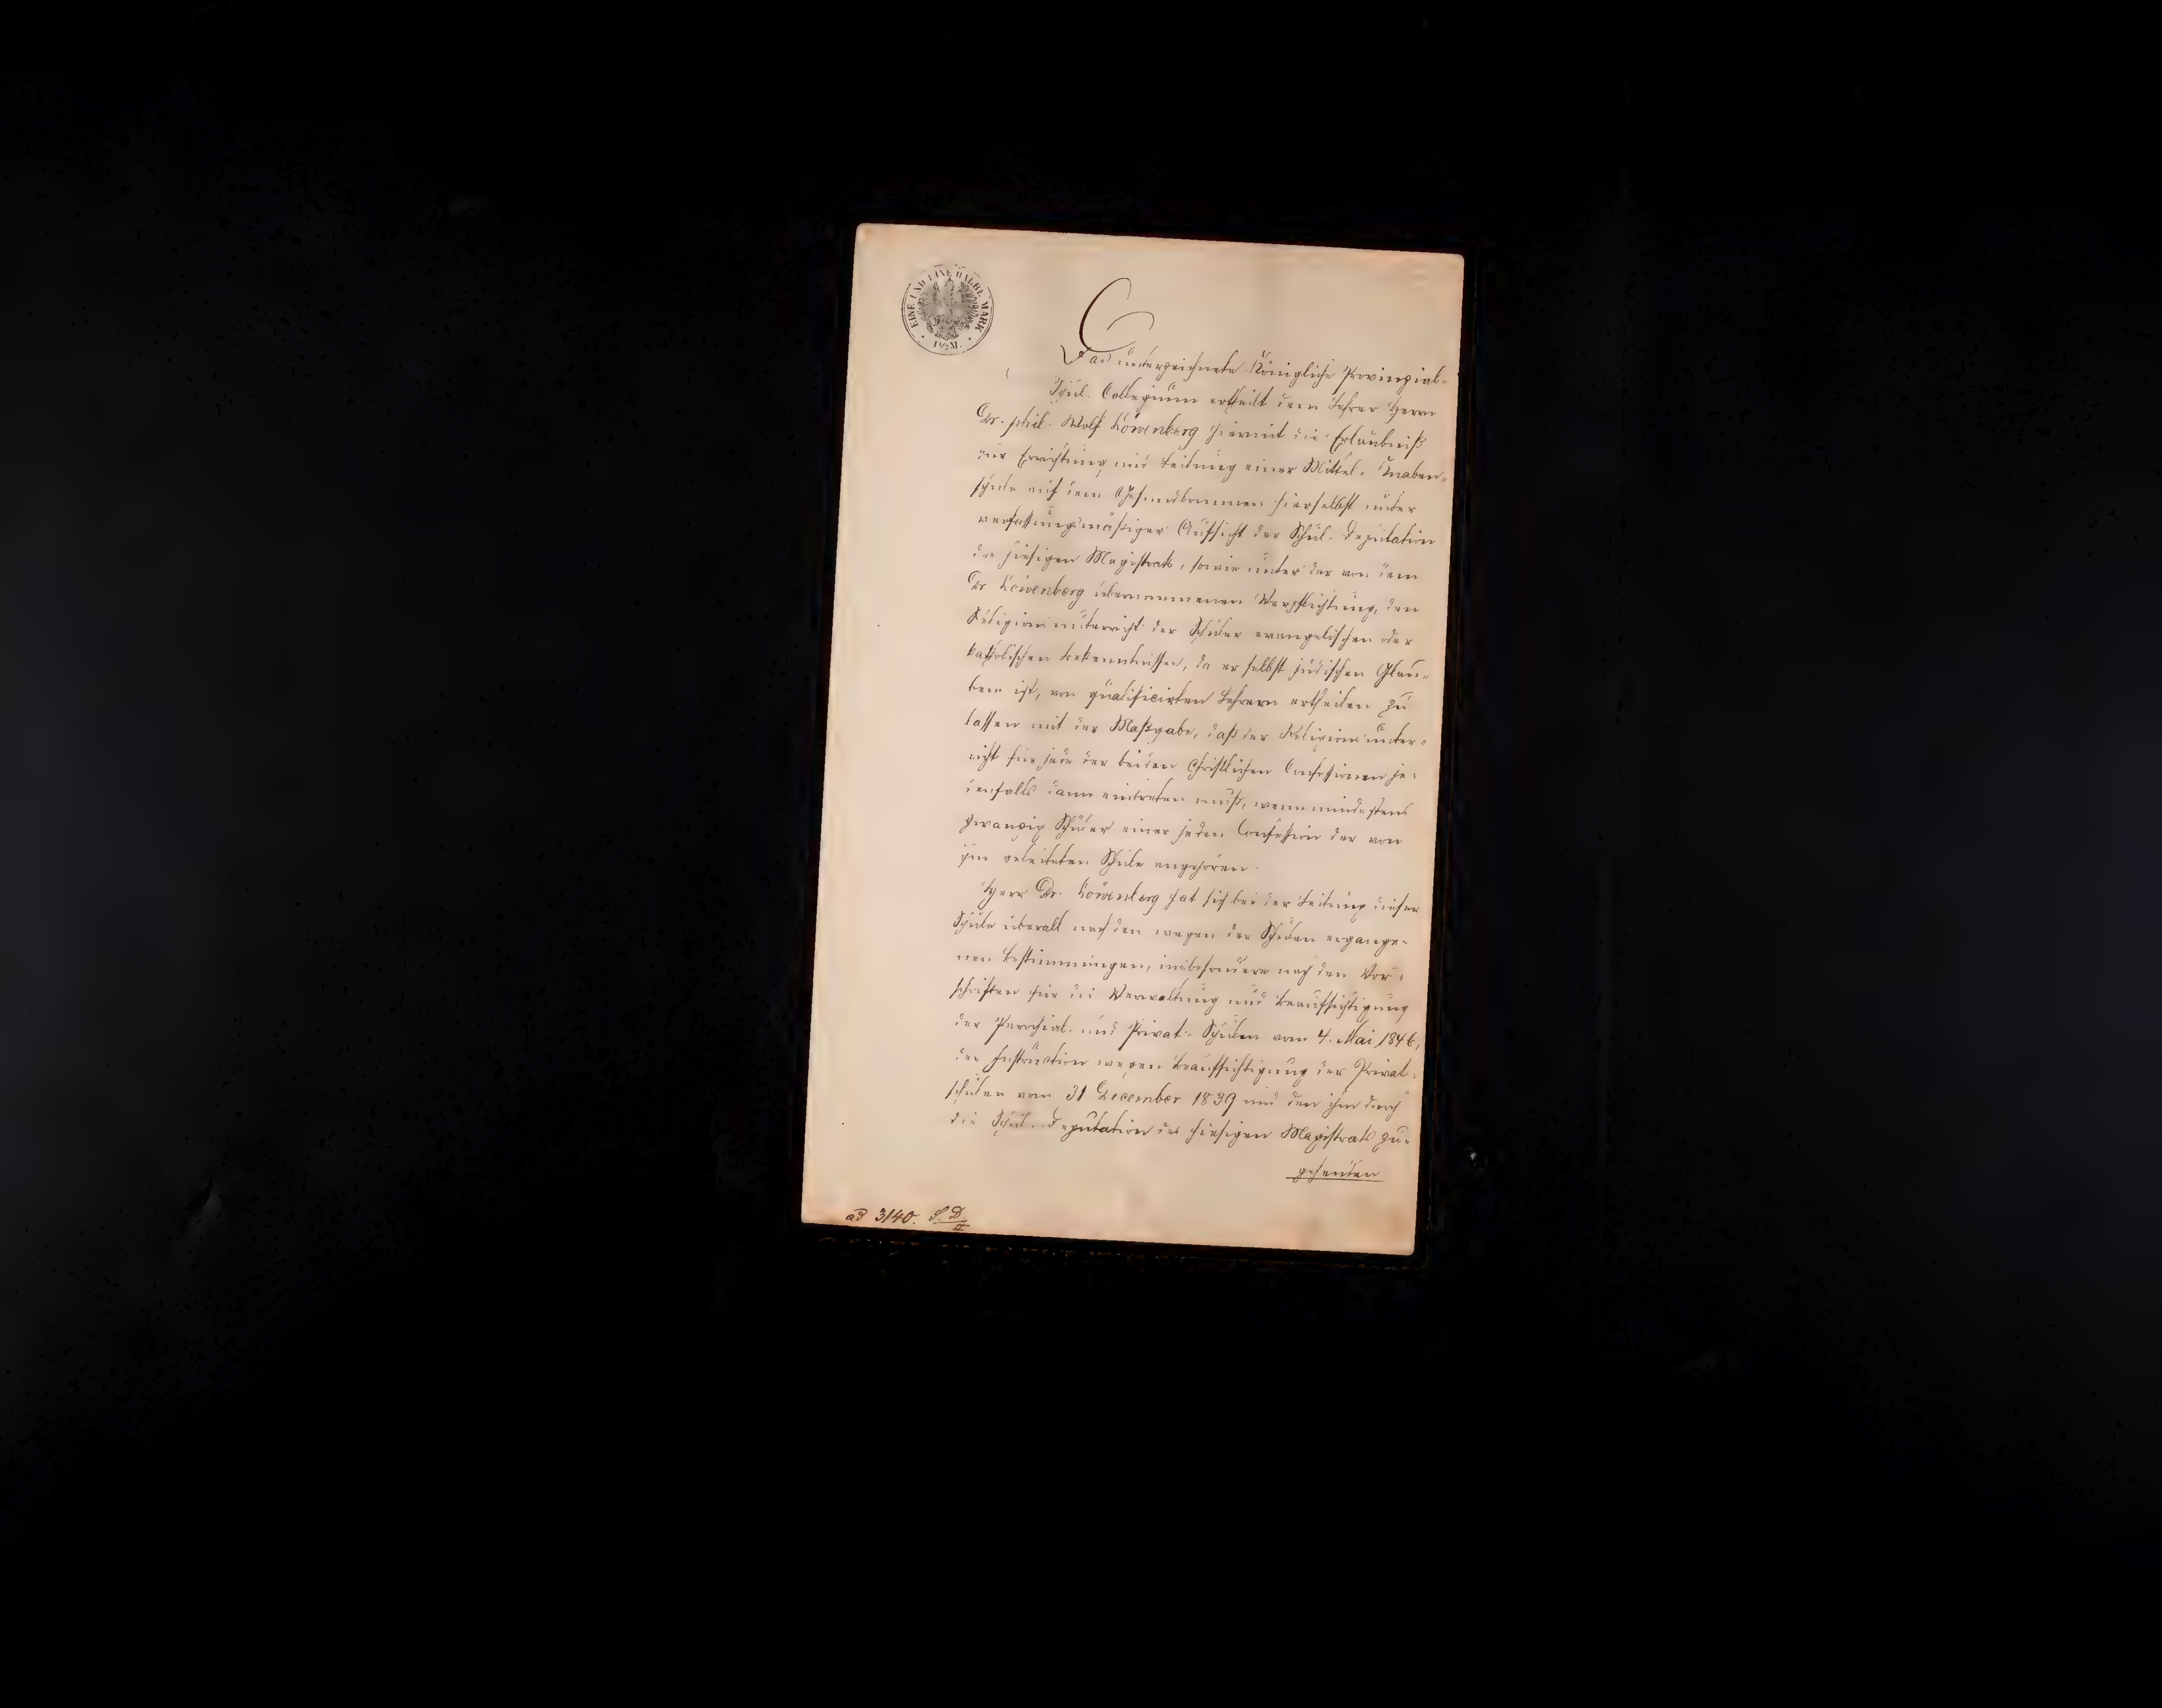 EINE UND EINE HALBE MARK
1½ M.
Das unterzeichnete Königliche Provinzial-
Schul-Collegium ertheilt dem Lehrer Herrn
Dr. phil. Wolf Löwenberg hiermit die Erlaubniß
zur Errichtung und Leitung einer Mittel-Knaben-
schule auf dem Gesundbrunnen hierselbst unter
verfassungsmäßiger Aufsicht der Schul-Deputation
des hiesigen Magistrats, sowie unter der von dem
Dr Löwenberg übernommenen Verpflichtung, den
Religionsunterricht der Schüler evangelischen oder
katholischen Bekenntnisses, da er selbst jüdischen Glau-
bens ist, von qualificirten Lehrern ertheilen zu
lassen mit der Maßgabe, daß der Religionsunter-
richt für jede der beiden christlichen Confessionen je-
denfalls dann eintreten muß, wenn mindestens
zwanzig Schüler einer jeden Confession der von
ihm geleiteten Schule angehören.
Herr Dr. Löwenberg hat sich bei der Leitung dieser
Schule überall nach den wegen der Schulen ergange-
nen Bestimmungen, insbesondere nach den Vor-
schriften für die Verwaltung und Beaufsichtigung
der Parochial- und Privat-Schulen vom 4. Mai 1846,
der Instruction wegen Beaufsichtigung der Privat-
schulen vom 31 December 1839 und den ihm durch
die Schul-Deputation des hiesigen Magistrats zu-
gehenden
ad 3140. S. D. II